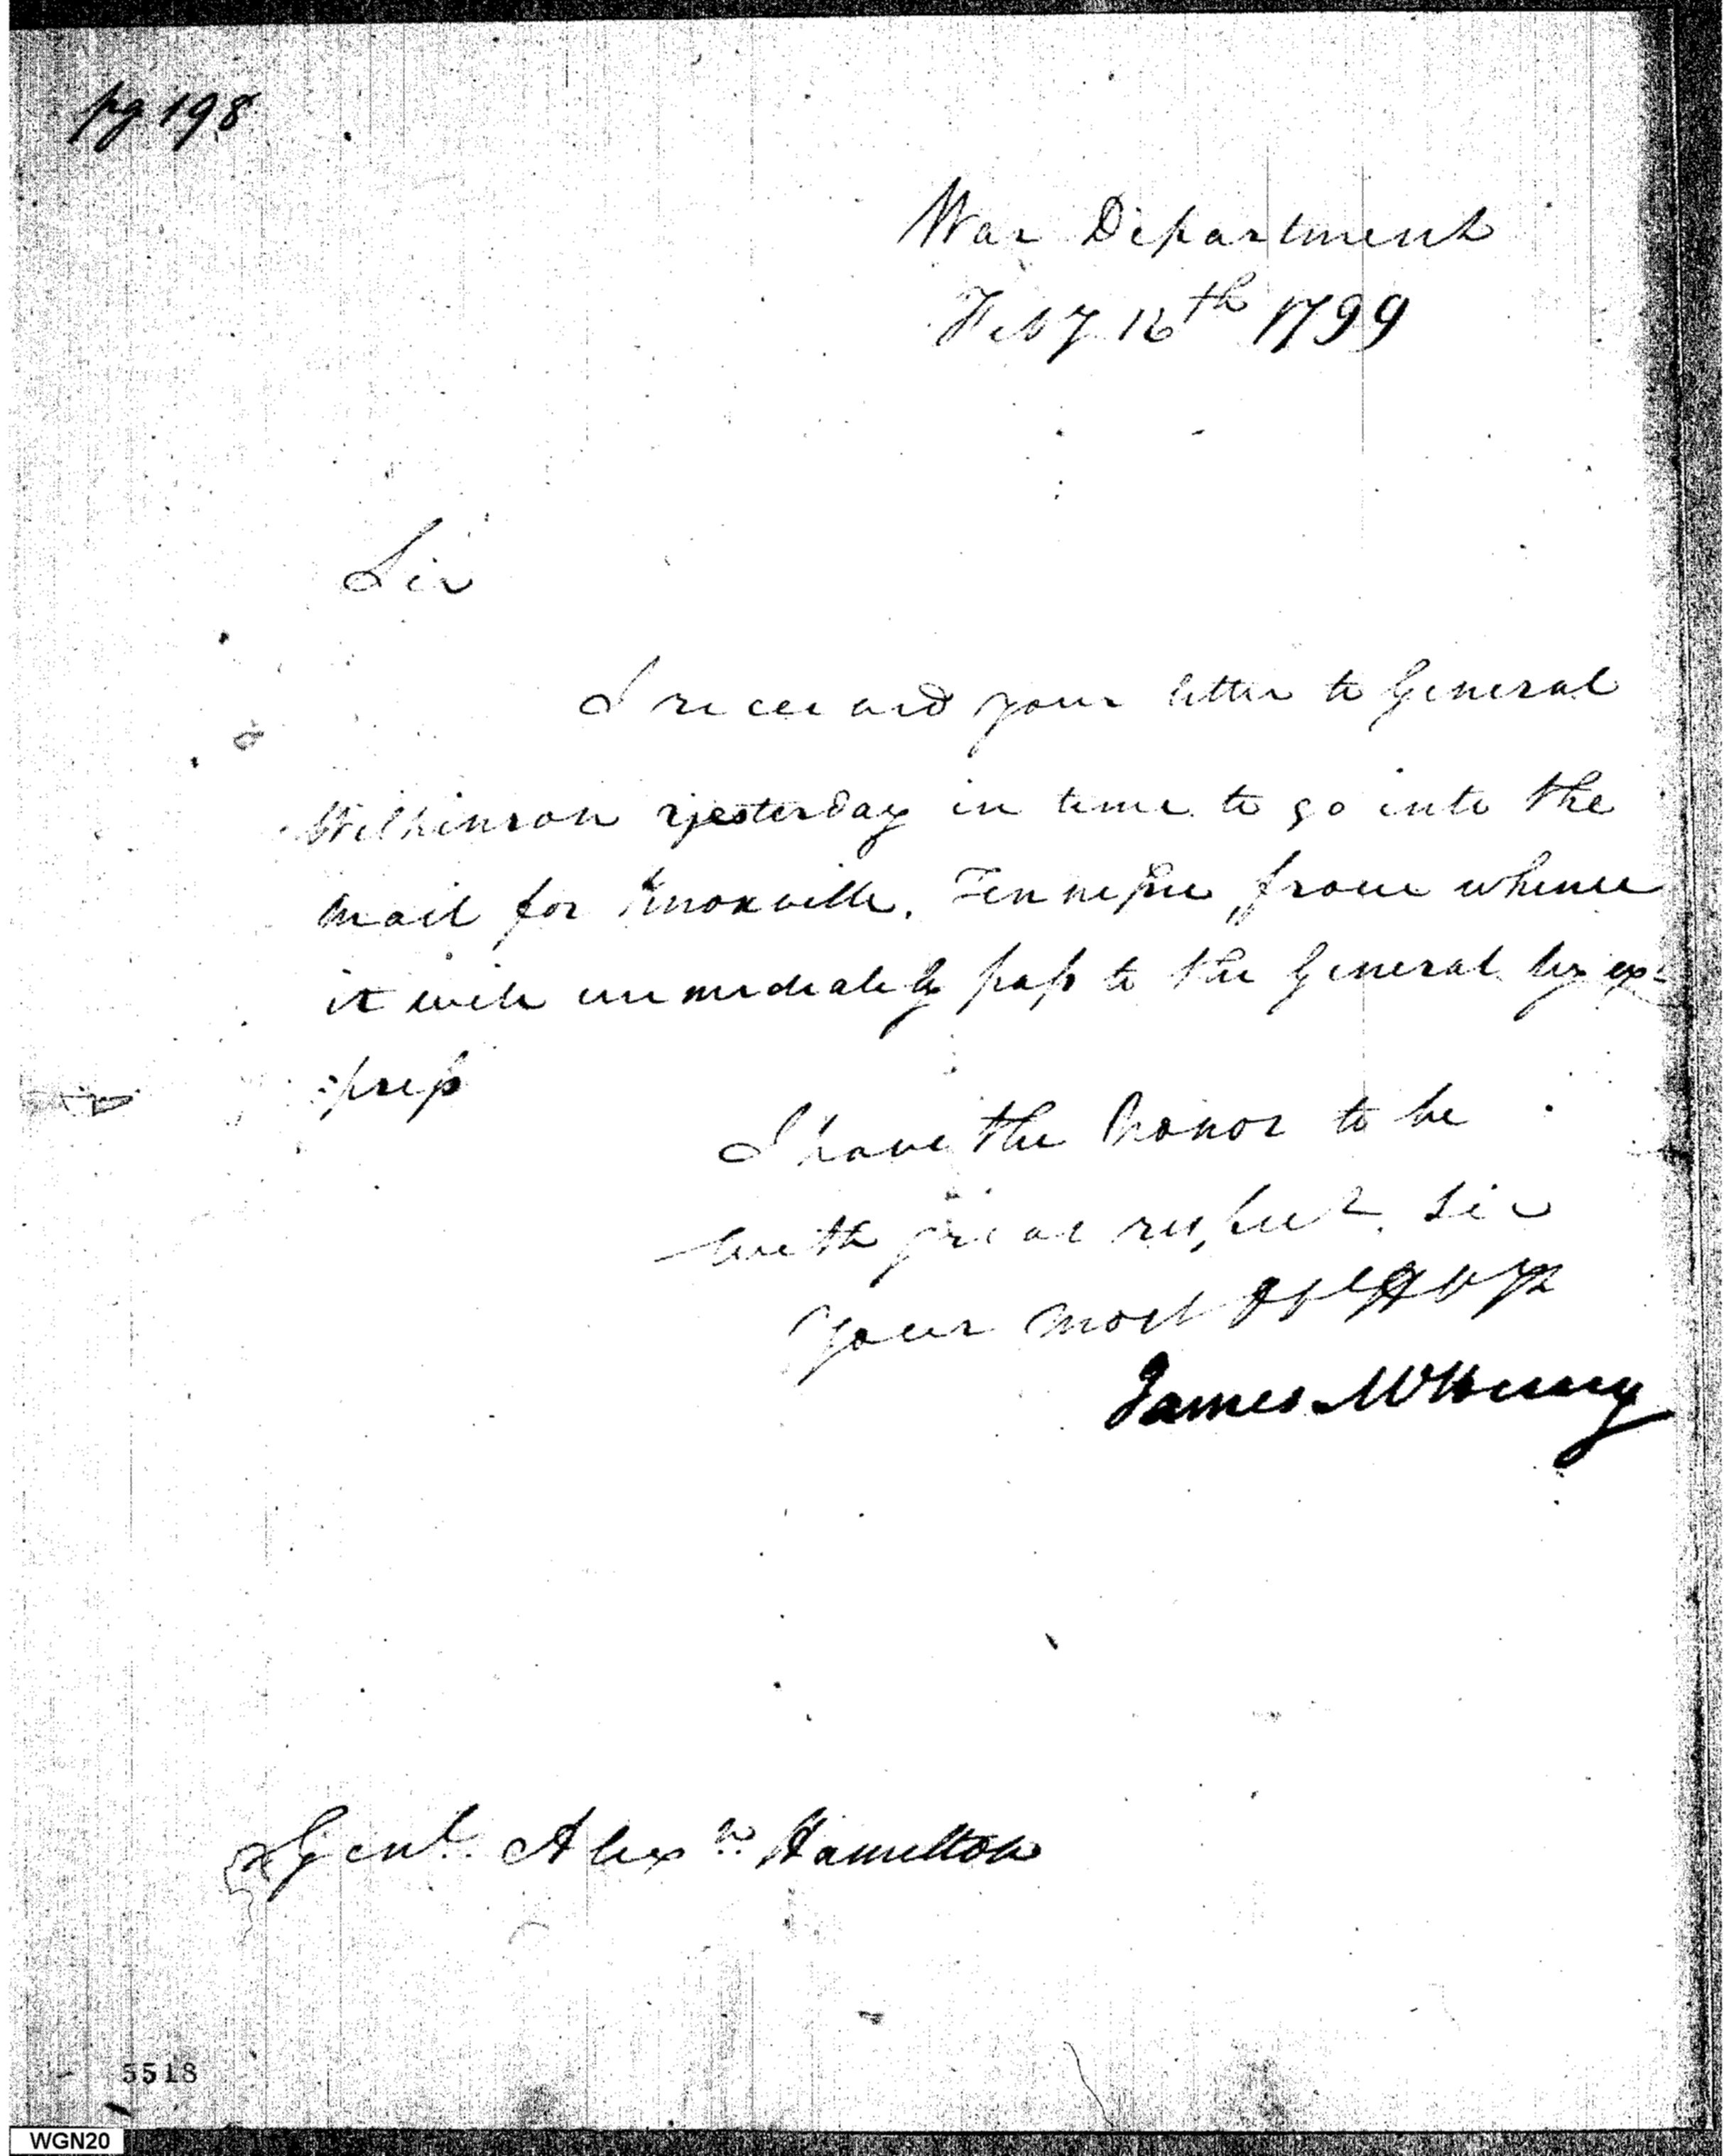 pg 198
War Department
Feby 16th 1799
Sir
I received your letter to General
Wilkinson yesterday in time to go into the
mail for Knoxville, Tennessee, from whence
it will immediately pass to the General by ex-
press
I have the honor to be
with great respect, Sir
Your most Ob H
James McHenry
Genl. Alexr. Hamilton
5518
WGN20